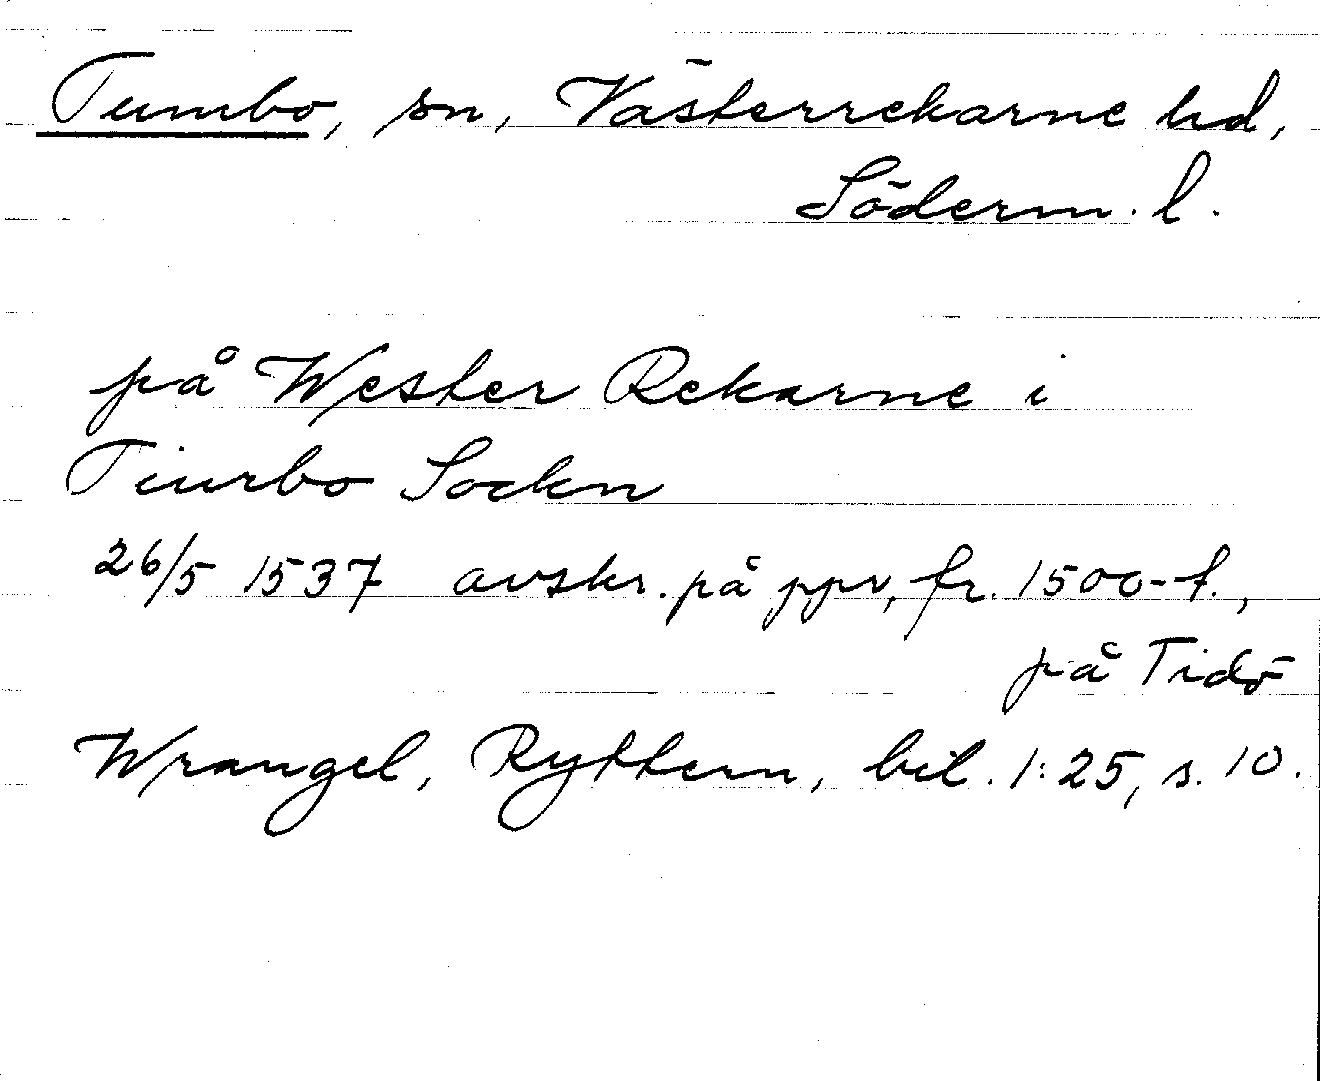 Tumbo, sn, Västerrekarne hd,
Söderm. l.
på Wester Rekarne i
Tiurbo Sockn
26/5 1537 avskr. på ppr, fr. 1500-t.,
på Tidö
Wrangel, Ryttern, bil. 1:25, s. 10.